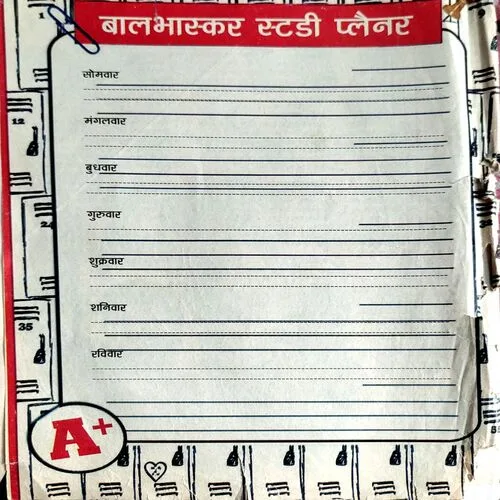 बालभास्कर स्टडी प्लैनर
सोमवार
मंगलवार
बुधवार
गुरुवार
शुक्रवार
शनिवार
रविवार
A+
12
35